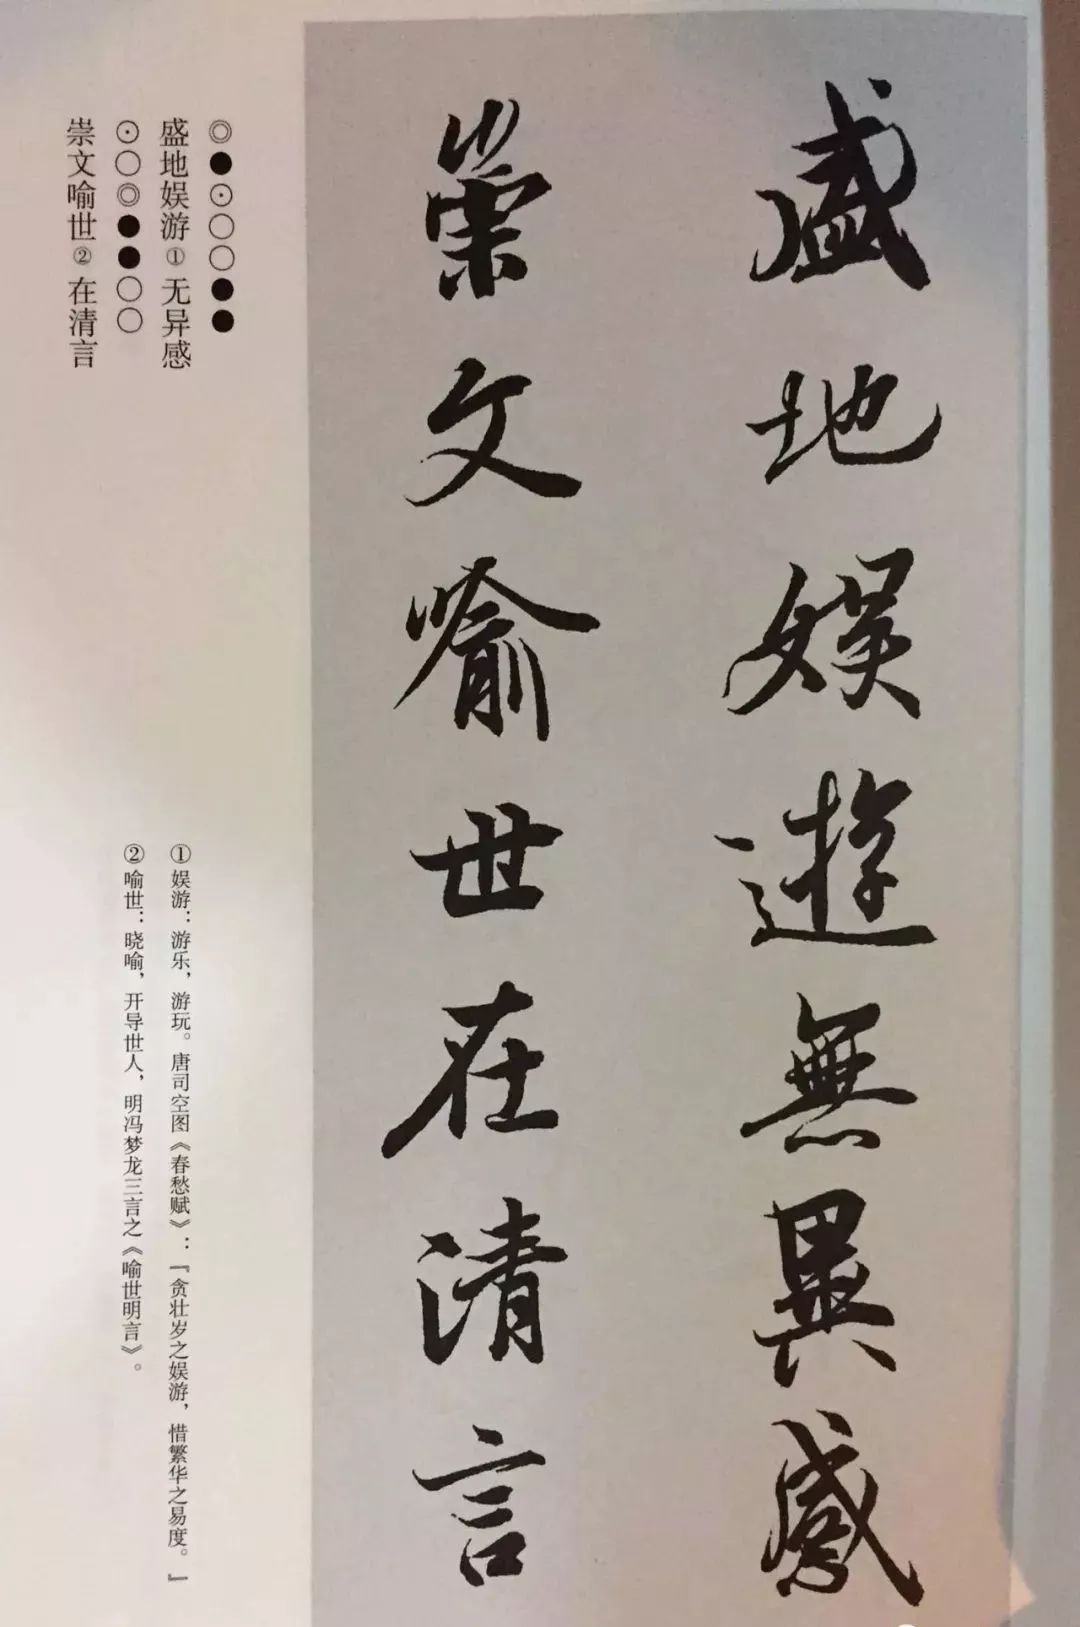 盛地娱遊無異感
崇文喻世在清言
◎●⊙○○●●
盛地娱游①无异感
⊙○◎●●○○
崇文喻世②在清言
①娱游：游乐，游玩。唐司空图《春愁赋》：「贪壮岁之娱游，惜繁华之易度。」
②喻世：晓喻，开导世人，明冯梦龙三言之《喻世明言》。